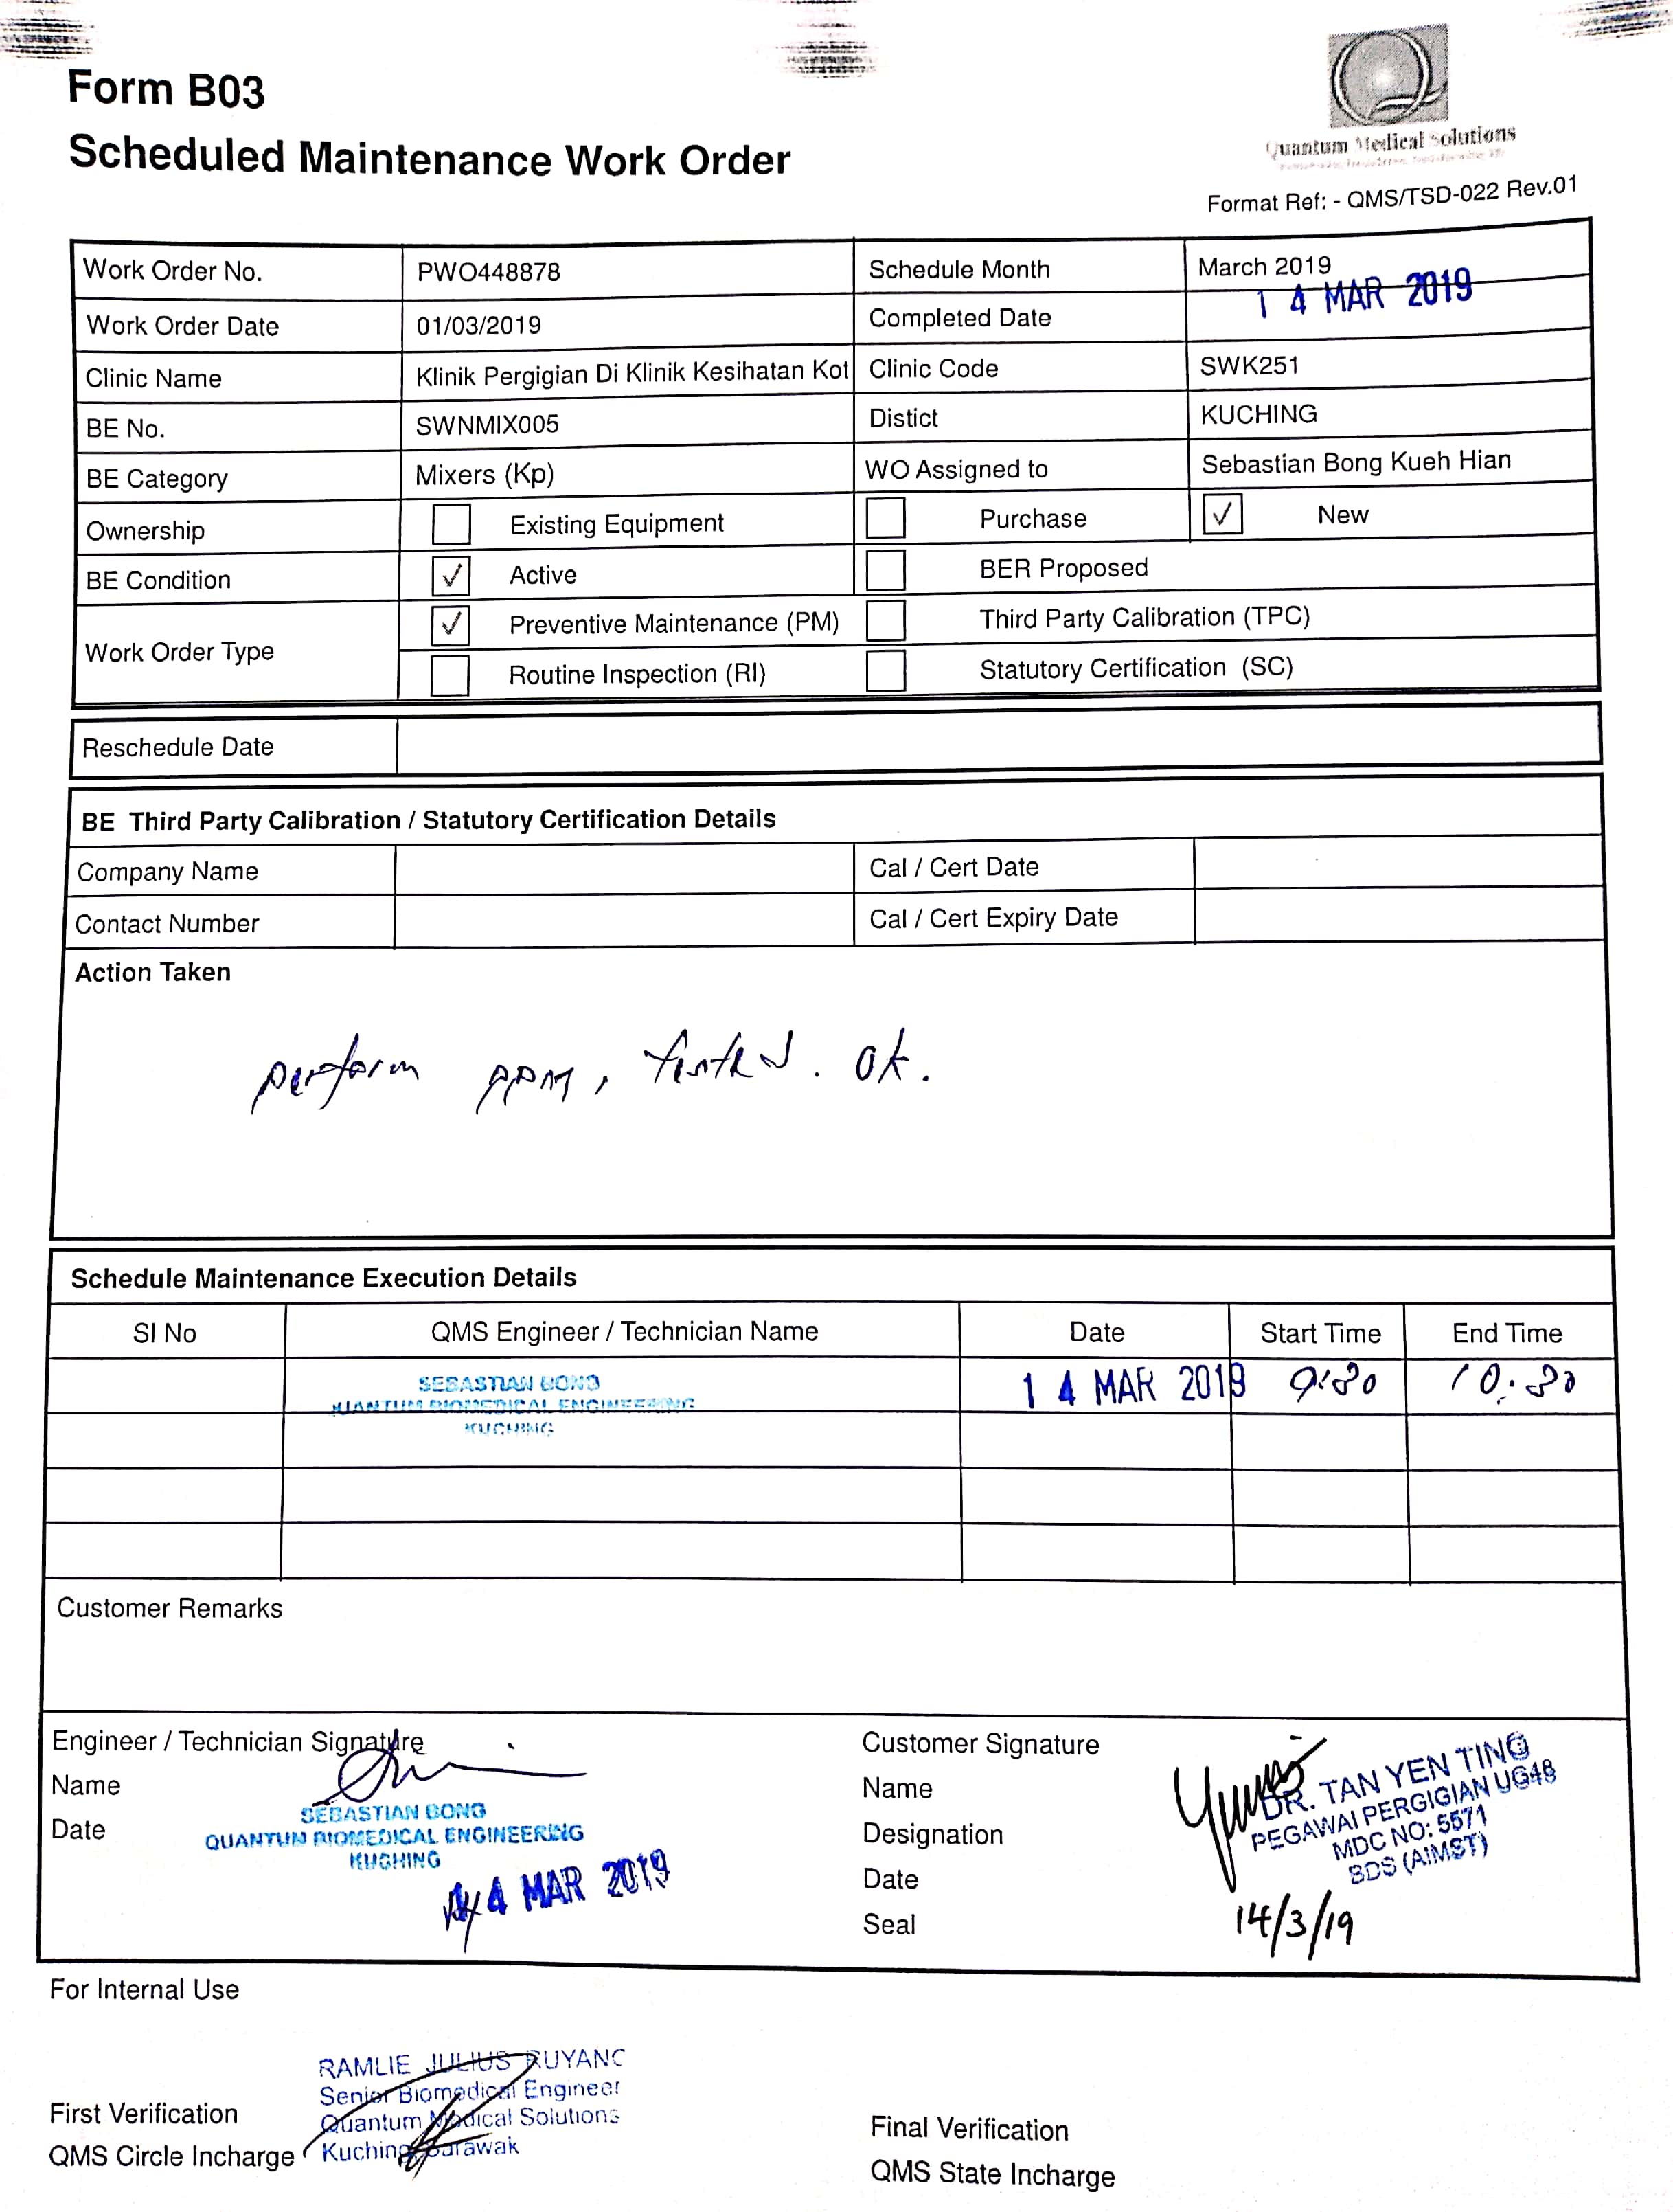 Form B03
Scheduled Maintenance Work Order
Quantum Medical Solutions
Format Ref: - QMS/TSD-022 Rev.01
Work Order No. PWO448878 Schedule Month March 2019
Work Order Date 01/03/2019 Completed Date 14 MAR 2019
Clinic Name Klinik Pergigian Di Klinik Kesihatan Kot Clinic Code SWK251
BE No. SWNMIX005 Distict KUCHING
BE Category Mixers (Kp) WO Assigned to Sebastian Bong Kueh Hian
Ownership Existing Equipment Purchase ✓ New
BE Condition ✓ Active BER Proposed
Work Order Type ✓ Preventive Maintenance (PM) Third Party Calibration (TPC)
Routine Inspection (RI) Statutory Certification (SC)
Reschedule Date
BE Third Party Calibration / Statutory Certification Details
Company Name Cal / Cert Date
Contact Number Cal / Cert Expiry Date
Action Taken
perform ppm, tested. ok.
Schedule Maintenance Execution Details
SI No QMS Engineer / Technician Name Date Start Time End Time
SEBASTIAN BONG 14 MAR 2019 9:30 10:30
QUANTUM BIOMEDICAL ENGINEERING
KUCHING
Customer Remarks
Engineer / Technician Signature
Name
Date
SEBASTIAN BONG
QUANTUM BIOMEDICAL ENGINEERING
KUCHING
14 MAR 2019
Customer Signature
Name
Designation
Date
Seal
DR. TAN YEN TING
PEGAWAI PERGIGIAN UG48
MDC NO: 5571
BDS (AIMST)
14/3/19
For Internal Use
First Verification
QMS Circle Incharge
RAMLIE JULIUS RUYANG
Senior Biomedical Engineer
Quantum Medical Solutions
Kuching Sarawak
Final Verification
QMS State Incharge